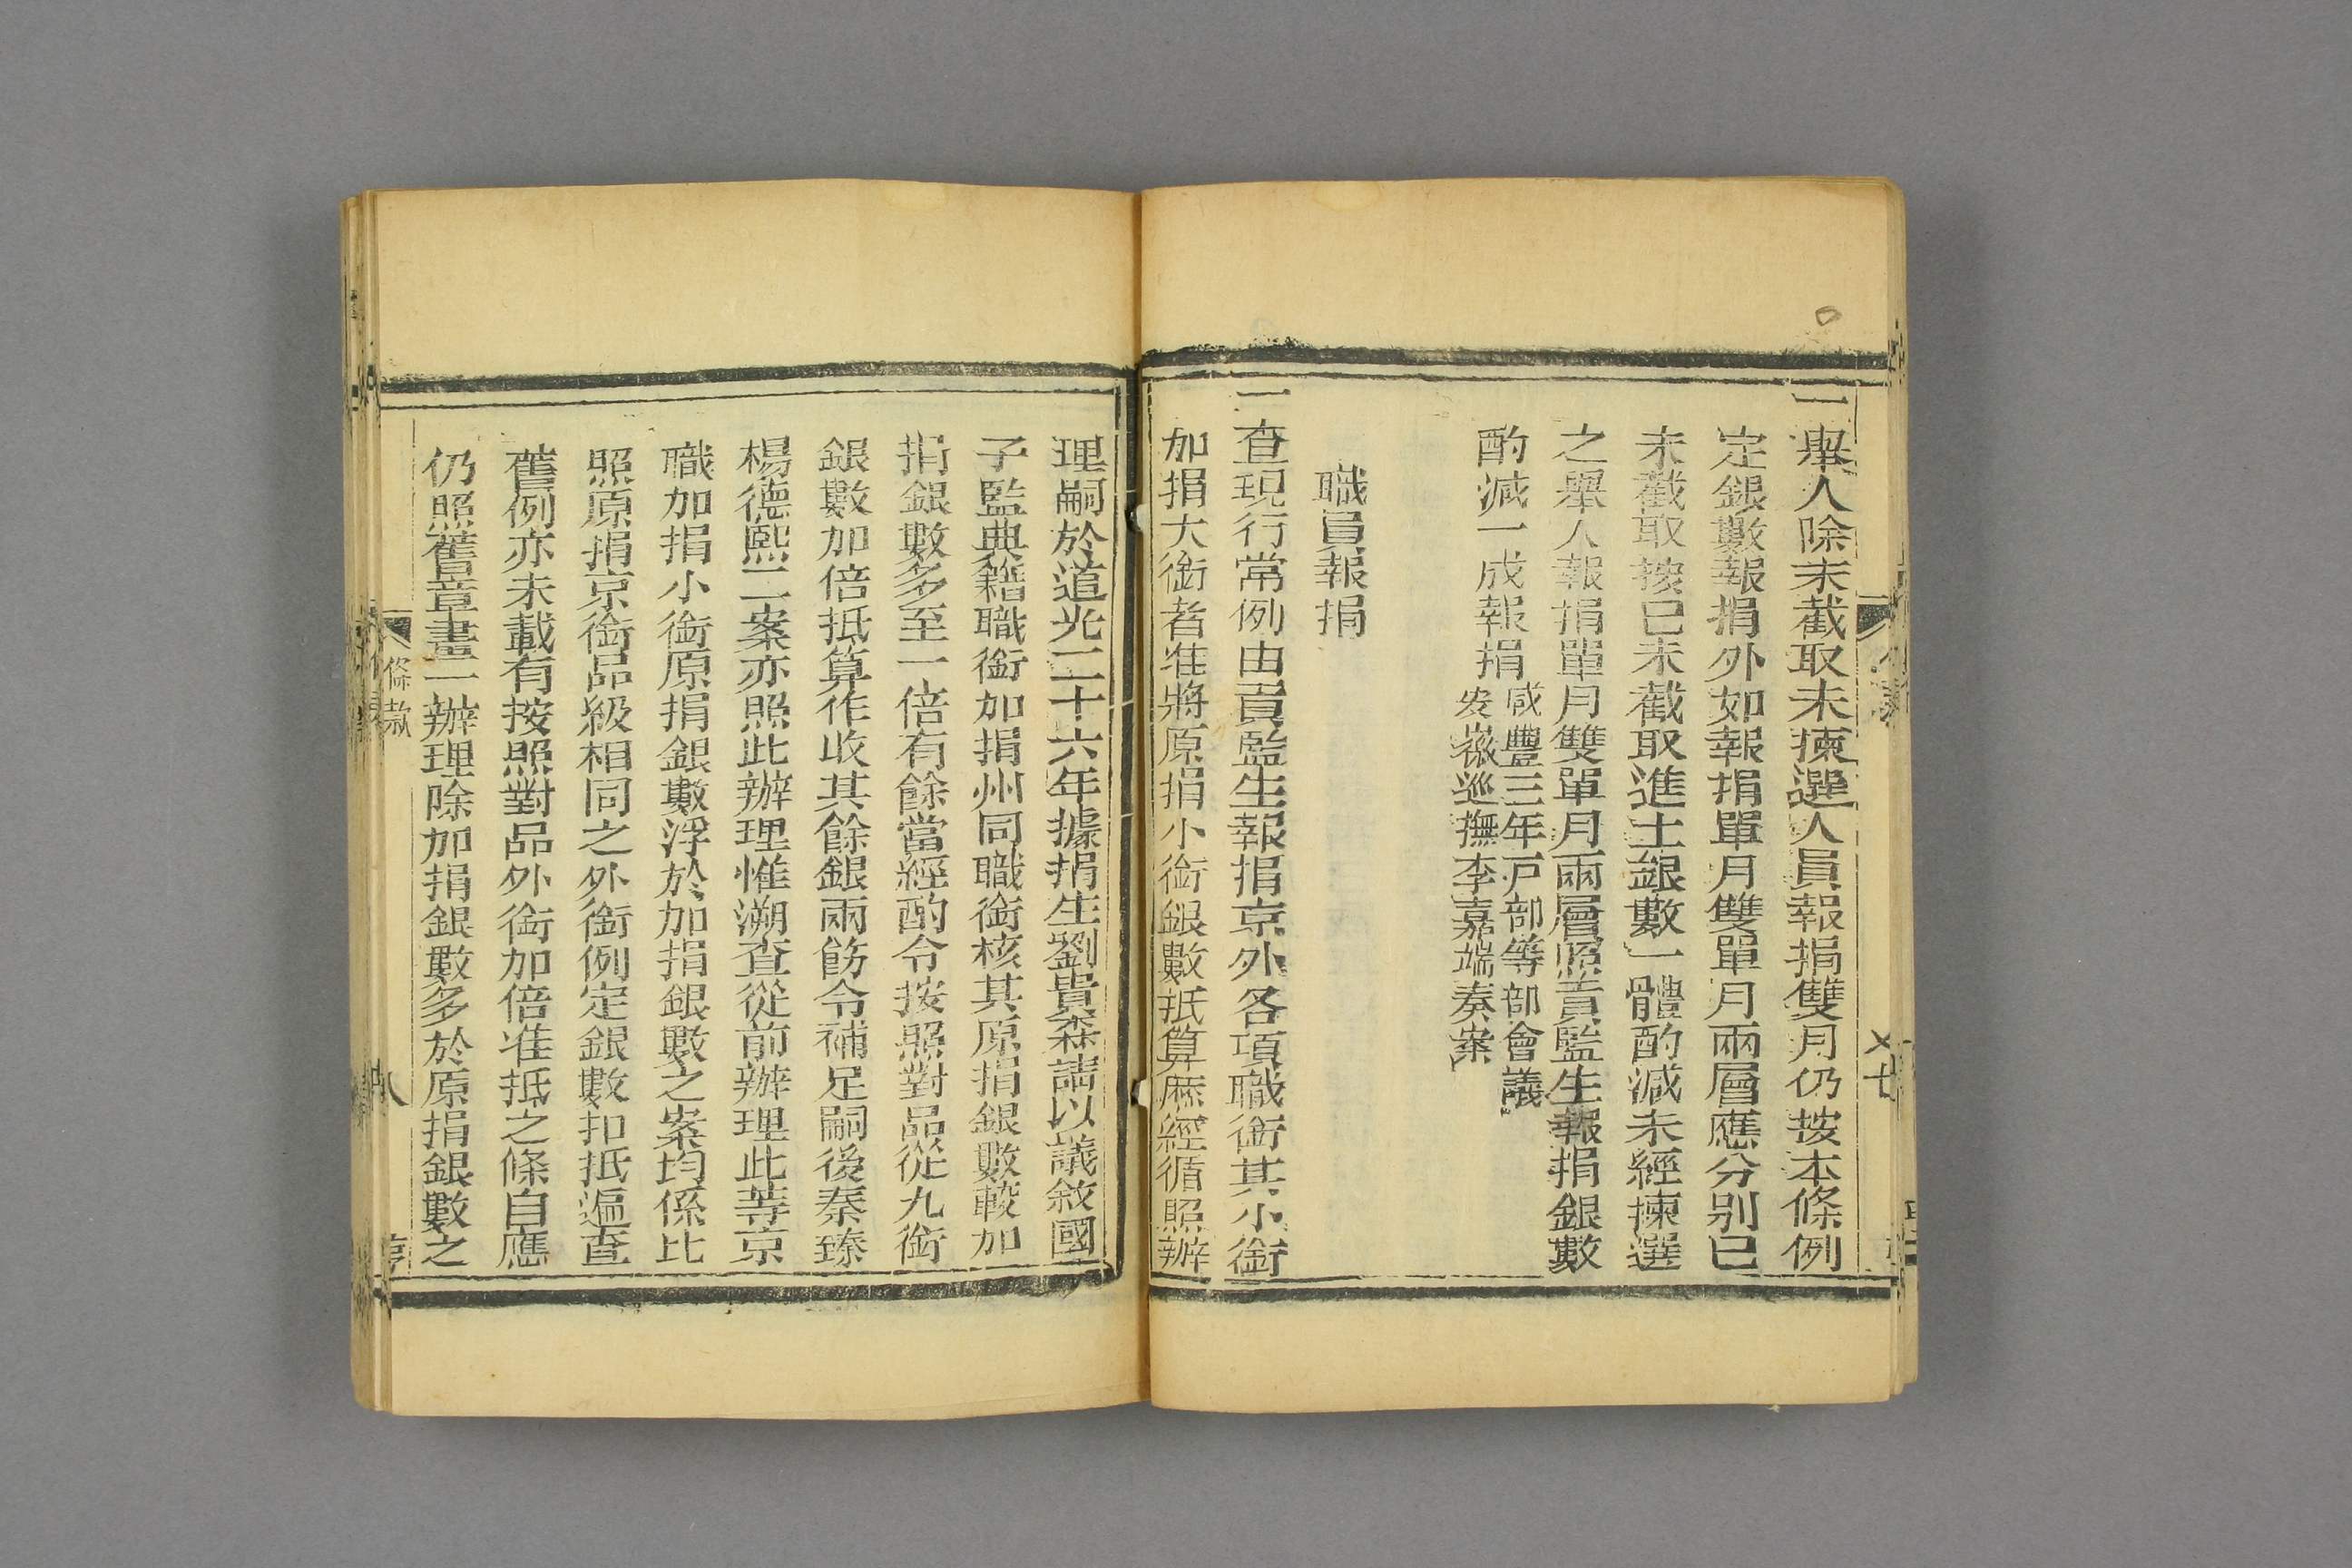 一舉人除未截取未揀選人員報捐雙月仍按本條例
定銀數報捐外如報捐單月雙單月兩層應分别已
未截取按已未截取進士銀數一體酌減未經揀選
之舉人報捐單月雙單月兩層照貢監生報捐銀數
酌減一成報捐
咸豐三年戸部等部會議
安徽巡撫李嘉端奏案
職員報捐
一查現行常例由貢監生報捐京外各項職銜其小銜
加捐大銜者准將原捐小銜銀數抵算歷經循照辦
理嗣於道光二十六年據捐生劉貴森請以議敘國
子監典籍職銜加捐州同職銜核其原捐銀數較加
捐銀數多至一倍有餘當經酌令按照對品從九銜
銀數加倍抵算作收其餘銀兩飭令補足嗣後秦臻
楊德熙二案亦照此辦理惟溯查從前辦理此等京
職加捐小銜原捐銀數浮於加捐銀數之案均係比
照原捐京銜品級相同之外銜例定銀數扣抵遍查
舊例亦未載有按照對品外銜加倍准抵之條自應
仍照舊章畫一辦理除加捐銀數多於原捐銀數之
條款
八